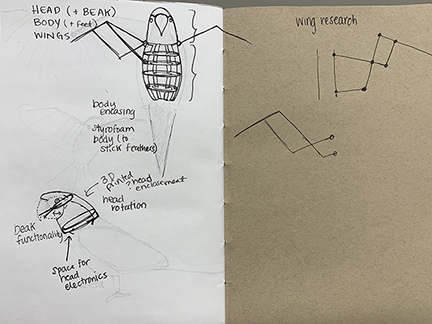 HEAD (+ BEAK)
BODY (+ feet)
WINGS
wing research
body
encasing
styrofoam
body (to
stick feathers)
3D
printed
? head
enclosement
head
rotation
beak
functionality
space for
head
electronics